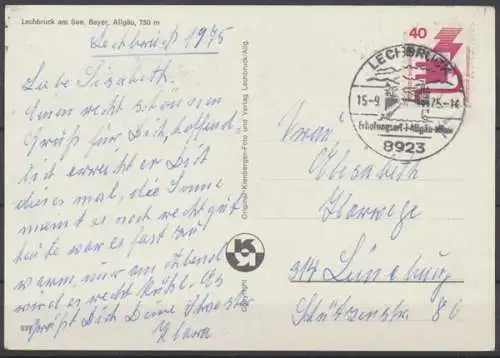 Lechbruck am See, Bayer. Allgäu, 730 m
Lechbruck 1975
Liebe Elsabeth!
Einen recht schönen
Gruß für Dich, hoffend,
daß erreicht er Dich
dies mal, die Sonne
meint es noch recht gut
heute war es fast zu
warm, nur am Abend
wird es recht kühl. Es
grüßt Dich Deine Schwester
Klara
Original-Kienberger-Foto und Verlag Lechbruck/Allg.
K
Copyright
40
LECHBRUCK
15-9 75-14
Erholungsort i. Allgäu
8923
Elisabeth
314 Lüneburg
Schützenstr 86